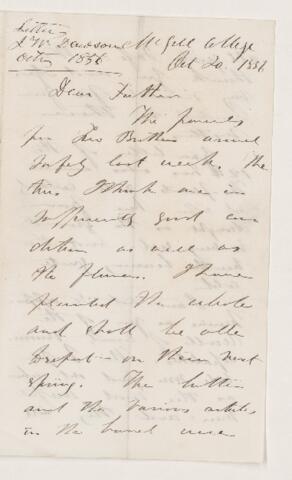 Letter
J. W. Dawson McGill College
Octr 1856 Oct 20. 1856
Dear Father
The parcels
per Two Brothers arrived
safely last week. The
trees I think are in
sufficiently good con
dition as well as
the flowers. I have
planted the whole
and shall be able
to report on them next
spring. The butter
and the various articles
in the barrel were